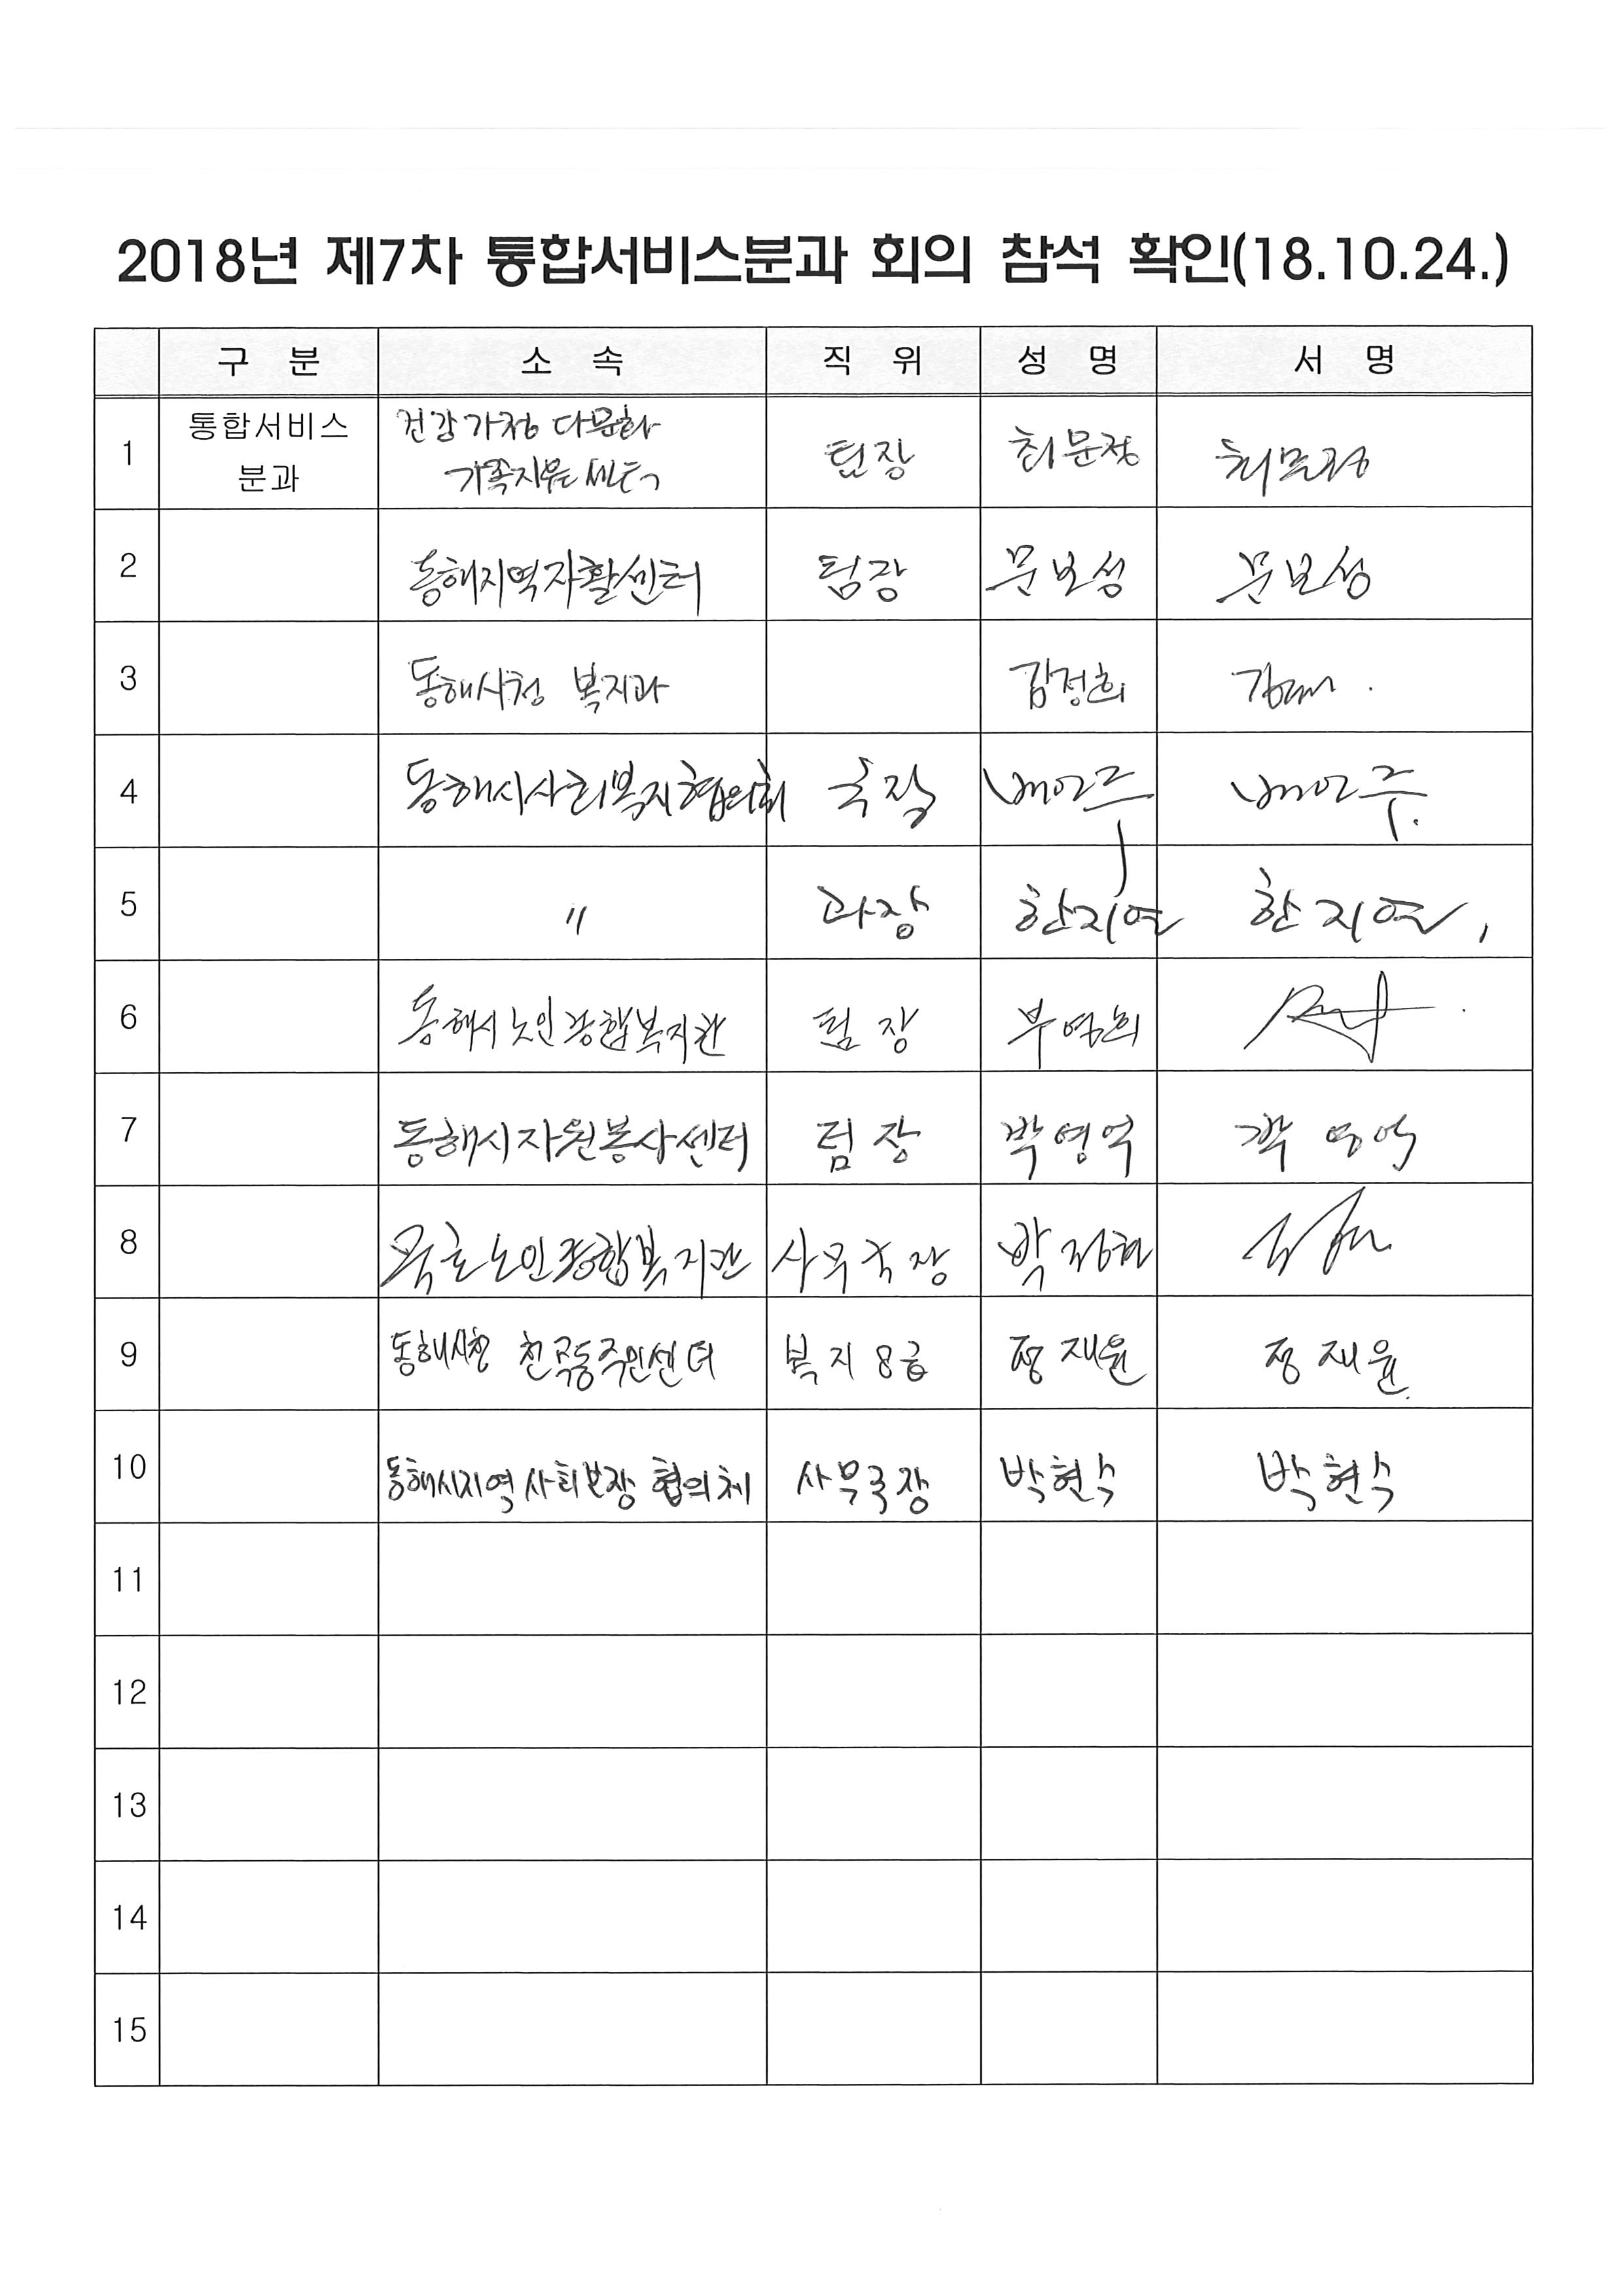 2018년 제7차 통합서비스분과 회의 참석 확인(18.10.24.)
구 분 소 속 직 위 성 명 서 명
1 통합서비스 분과 건강가정 다문화 가족지원센터 팀장 최문정 최문정
2 동해지역자활센터 팀장 문보성 문보성
3 동해시청 복지과 김정희
4 동해시사회복지협의회 국장 배연주 배연주.
5 〃 과장 한지연 한지연,
6 동해시노인종합복지관 팀장 부영희
7 동해시자원봉사센터 팀장 박영억 박영억
8 묵호노인종합복지관 사무국장 박정현
9 동해시청 천곡동주민센터 복지8급 정재윤 정재윤.
10 동해시지역사회보장협의체 사무국장 박현수 박현수
11
12
13
14
15